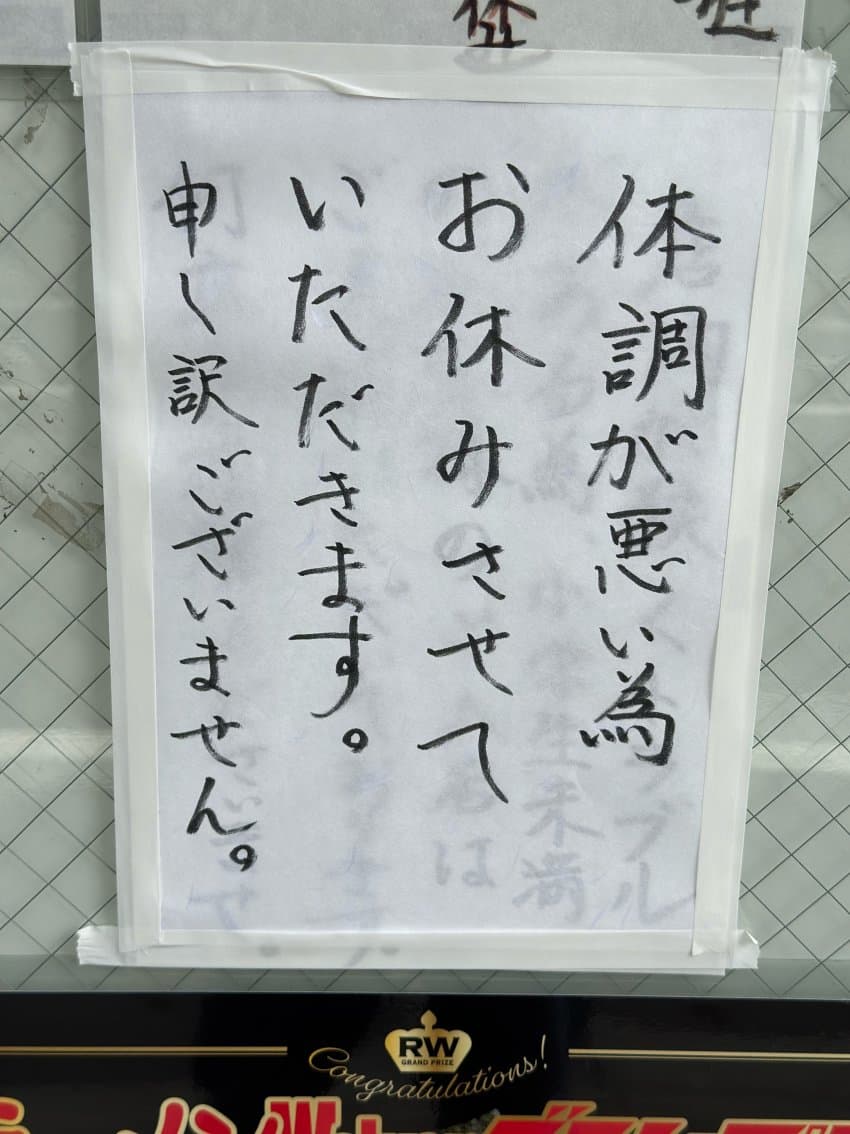 体調が悪い為
お休みさせて
いただきます。
申し訳ございません。
RW
GRAND PRIZE
Congratulations!